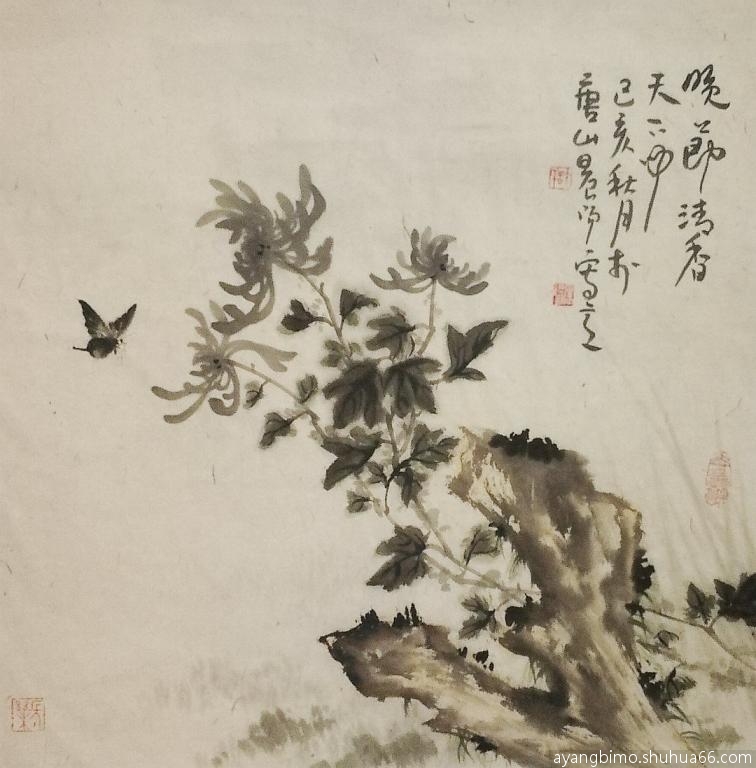 晚節清香
天下
己亥秋月於
唐山晨寫意
ayangbimo.shuhua66.com